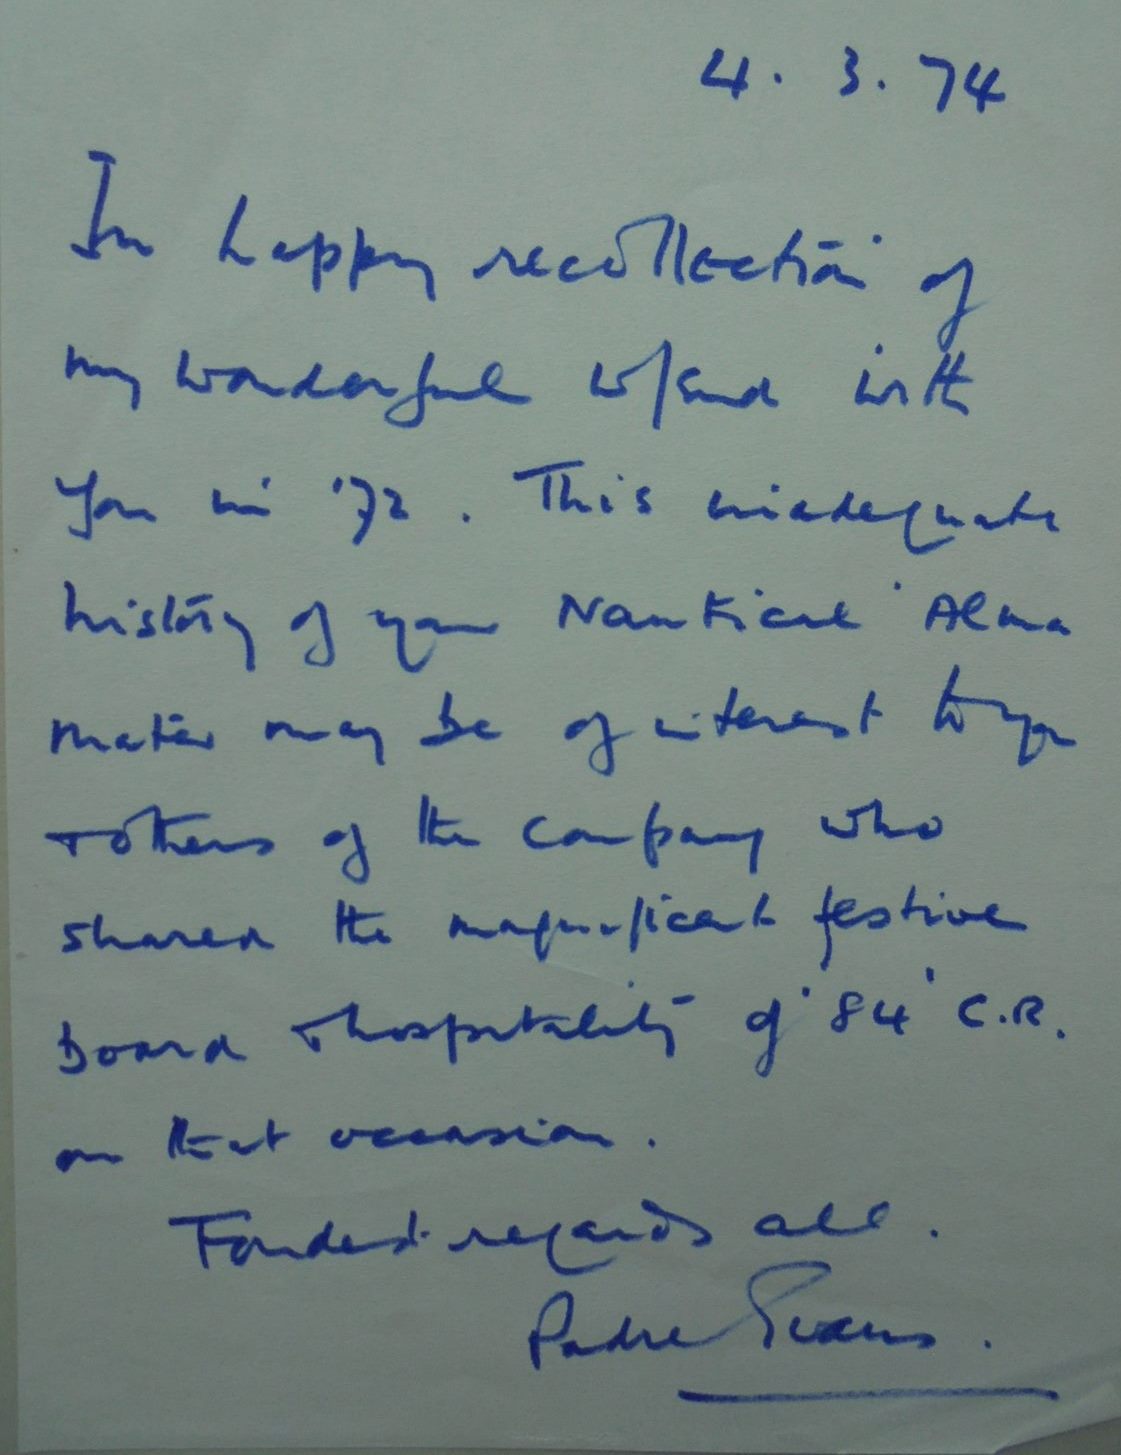 4. 3. 74
In happy recollection of
my wonderful w/end with
you in '72. This inadequate
history of your Nautical 'Alma
mater' may be of interest to you
+ others of the company who
shared the magnificent festive
board + hospitality of '84' C.R.
on that occasion.
Fondest regards all.
Padre Evans.